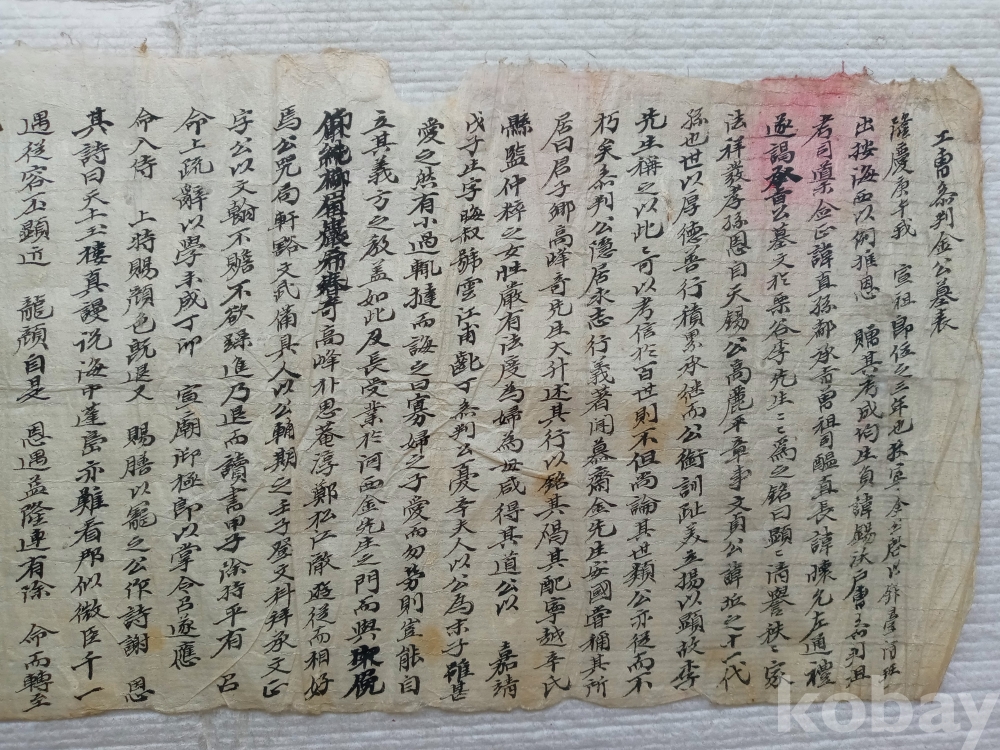 工曺參判金公墓表
隆慶庚午我 宣祖卽位之三年也 金公啓以
出按海西以例推恩 贈其考成均生員諱錫沃戶曺參判祖
考司藁僉正諱直孫都承旨曾祖司醞直長諱 左通禮
遂謁 公墓文於栗谷李先生先生爲之銘曰顯顯淸譽秩秩家
法祥發孝孫恩自天錫公高麗平章事文貞公諱 之十一代
孫也世以厚德善行積累承继而公衡訓趾美立揚以顯故李
先生稱之以此此可以考信於百世則不但尚論其世類公亦従而不
朽矣參判公隱居求志行義著聞慕齋金先生安國嘗稱其所
居曰君子鄉高峰奇先生大升述其行以銘其碣其配寧越辛氏
縣監仲粹之女性嚴有法度爲婦爲母咸得其道公以 嘉靖
戊子止字晦叔號雲江甫齓丁參判公憂辛夫人以公為末子雖甚
愛之然有小過輒撻而誨之曰寡婦之子愛而勿勞則豈能自
立其義方之敎盖如此及長受業於河西金先生之門而與
奇高峰朴思菴淳鄭松江澈遊従而相好
焉公器局軒豁文武備具人以公輔期之壬子登文科拜承文正
字公以文翰不贍不欲躁進乃退而讀書甲子除持平有 召
命上疏辭以學未成丁卯 宣廟卽極卽以掌令召遂應
命入侍 上特賜顔色旣退又 賜膳以寵之公作詩謝 恩
其詩曰天上玉樓真謾说海中蓬島亦難看那似微臣千一
遇従容咫顯近 龍顏自是 恩遇益隆連有除 命而轉至
kobay